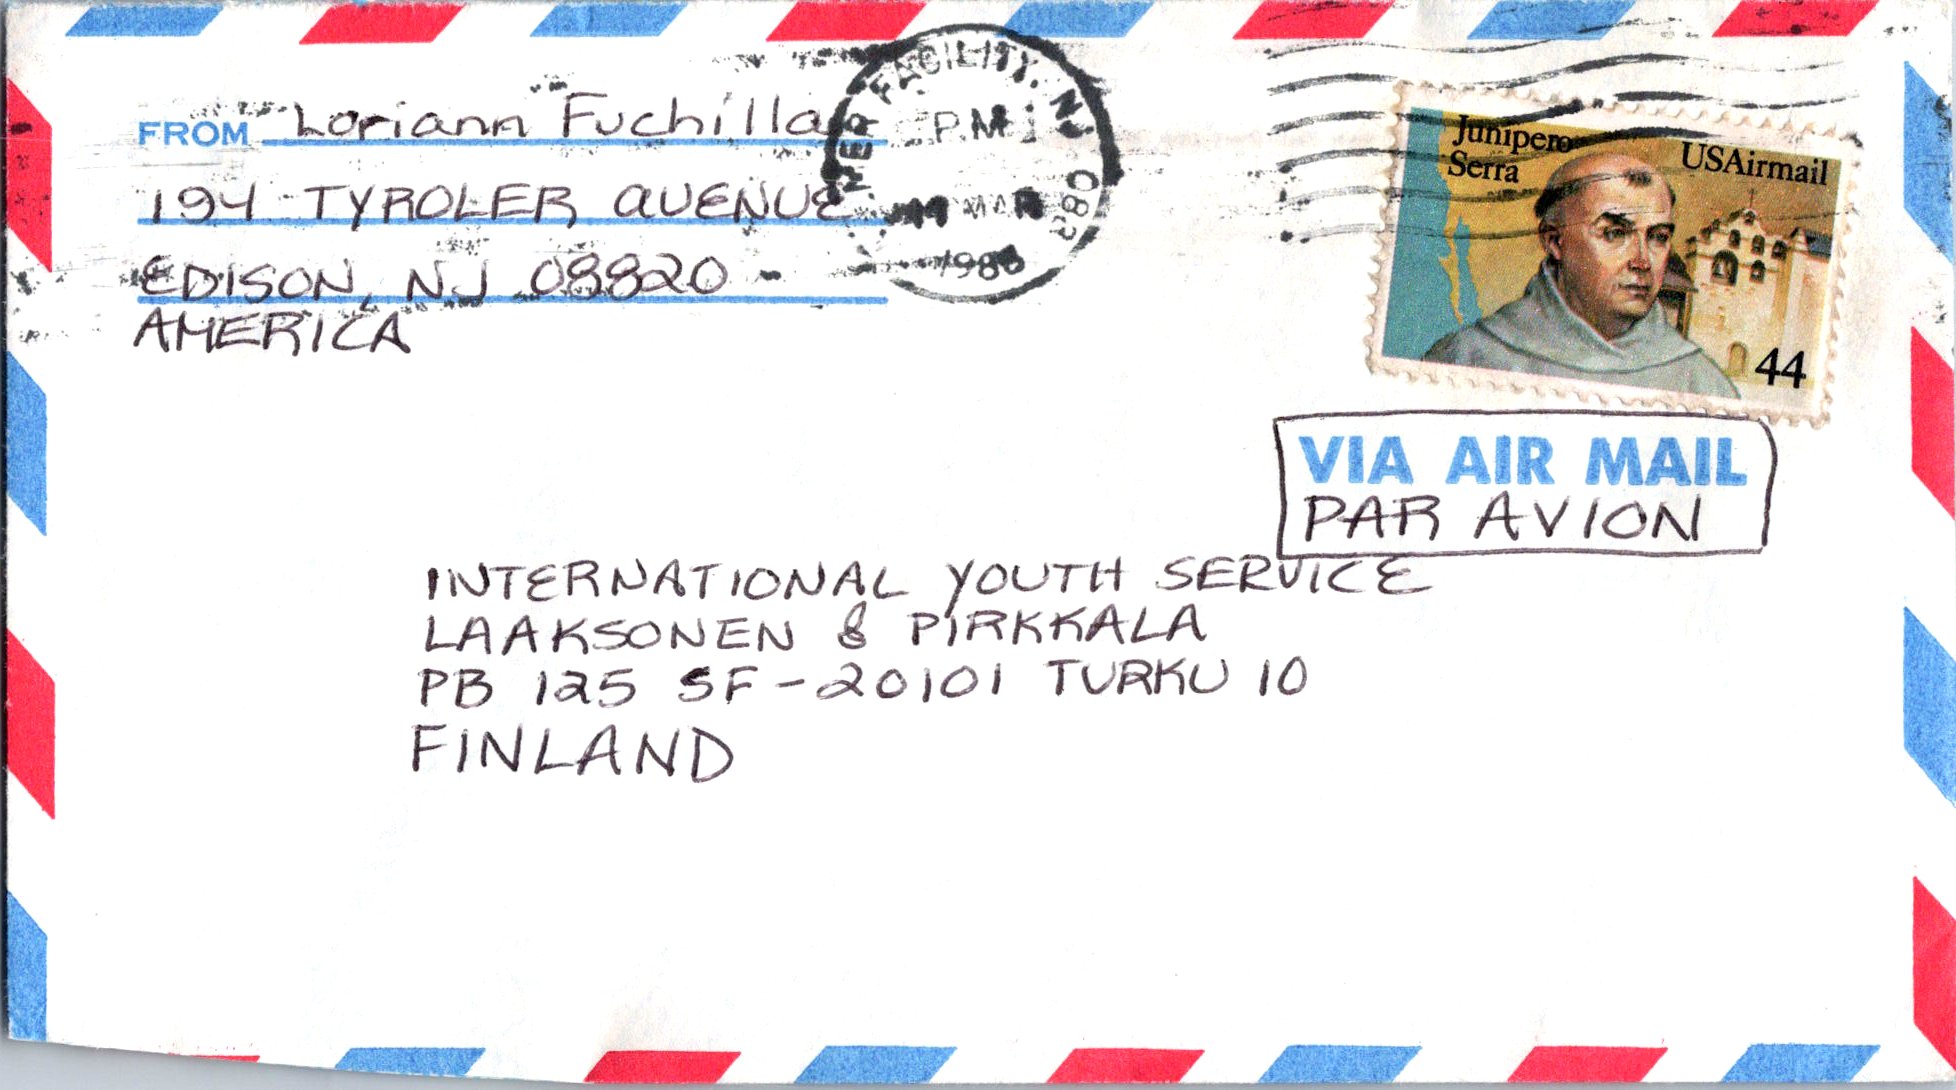 FROM Loriann Fuchilla
194 TYROLER AVENUE
EDISON, NJ 08820
AMERICA
FACILITY, NJ 088
P.M
MAR
1988
Junipero
Serra
USAirmail
44
VIA AIR MAIL
PAR AVION
INTERNATIONAL YOUTH SERVICE
LAAKSONEN & PIRKKALA
PB 125 SF-20101 TURKU 10
FINLAND